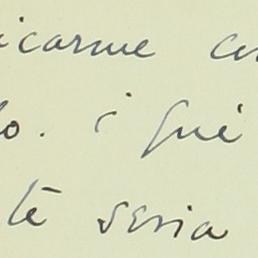 icarme con
lo. ¿ Qué
te seria